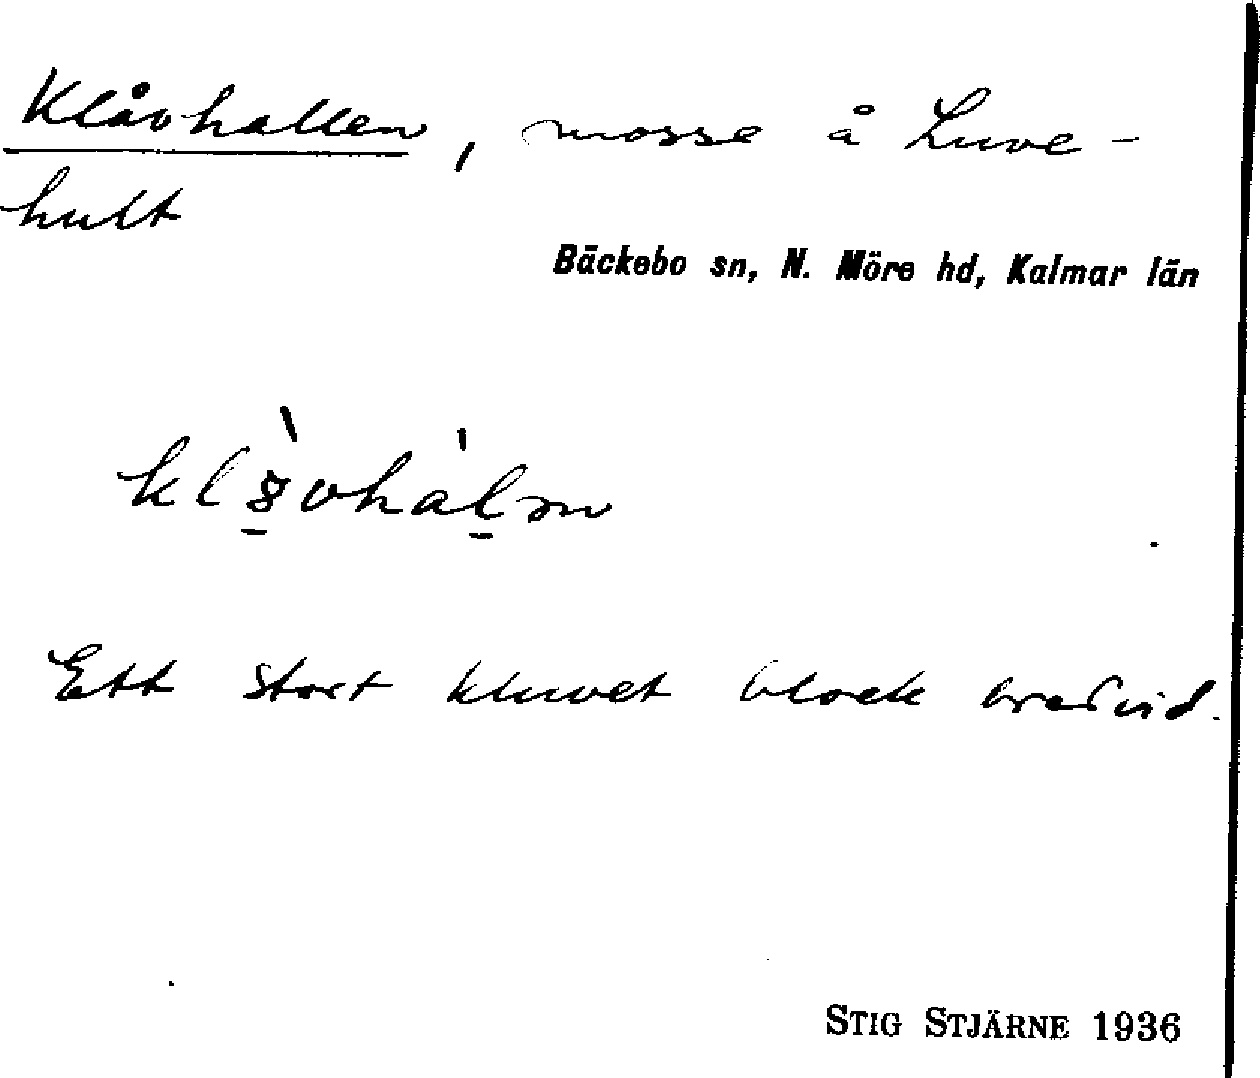 Klåvhallen, mosse å Luve-
hult
Bäckebo sn, N. Möre hd, Kalmar län
Ett stort kluvet block bredvid.
STIG STJÄRNE 1936